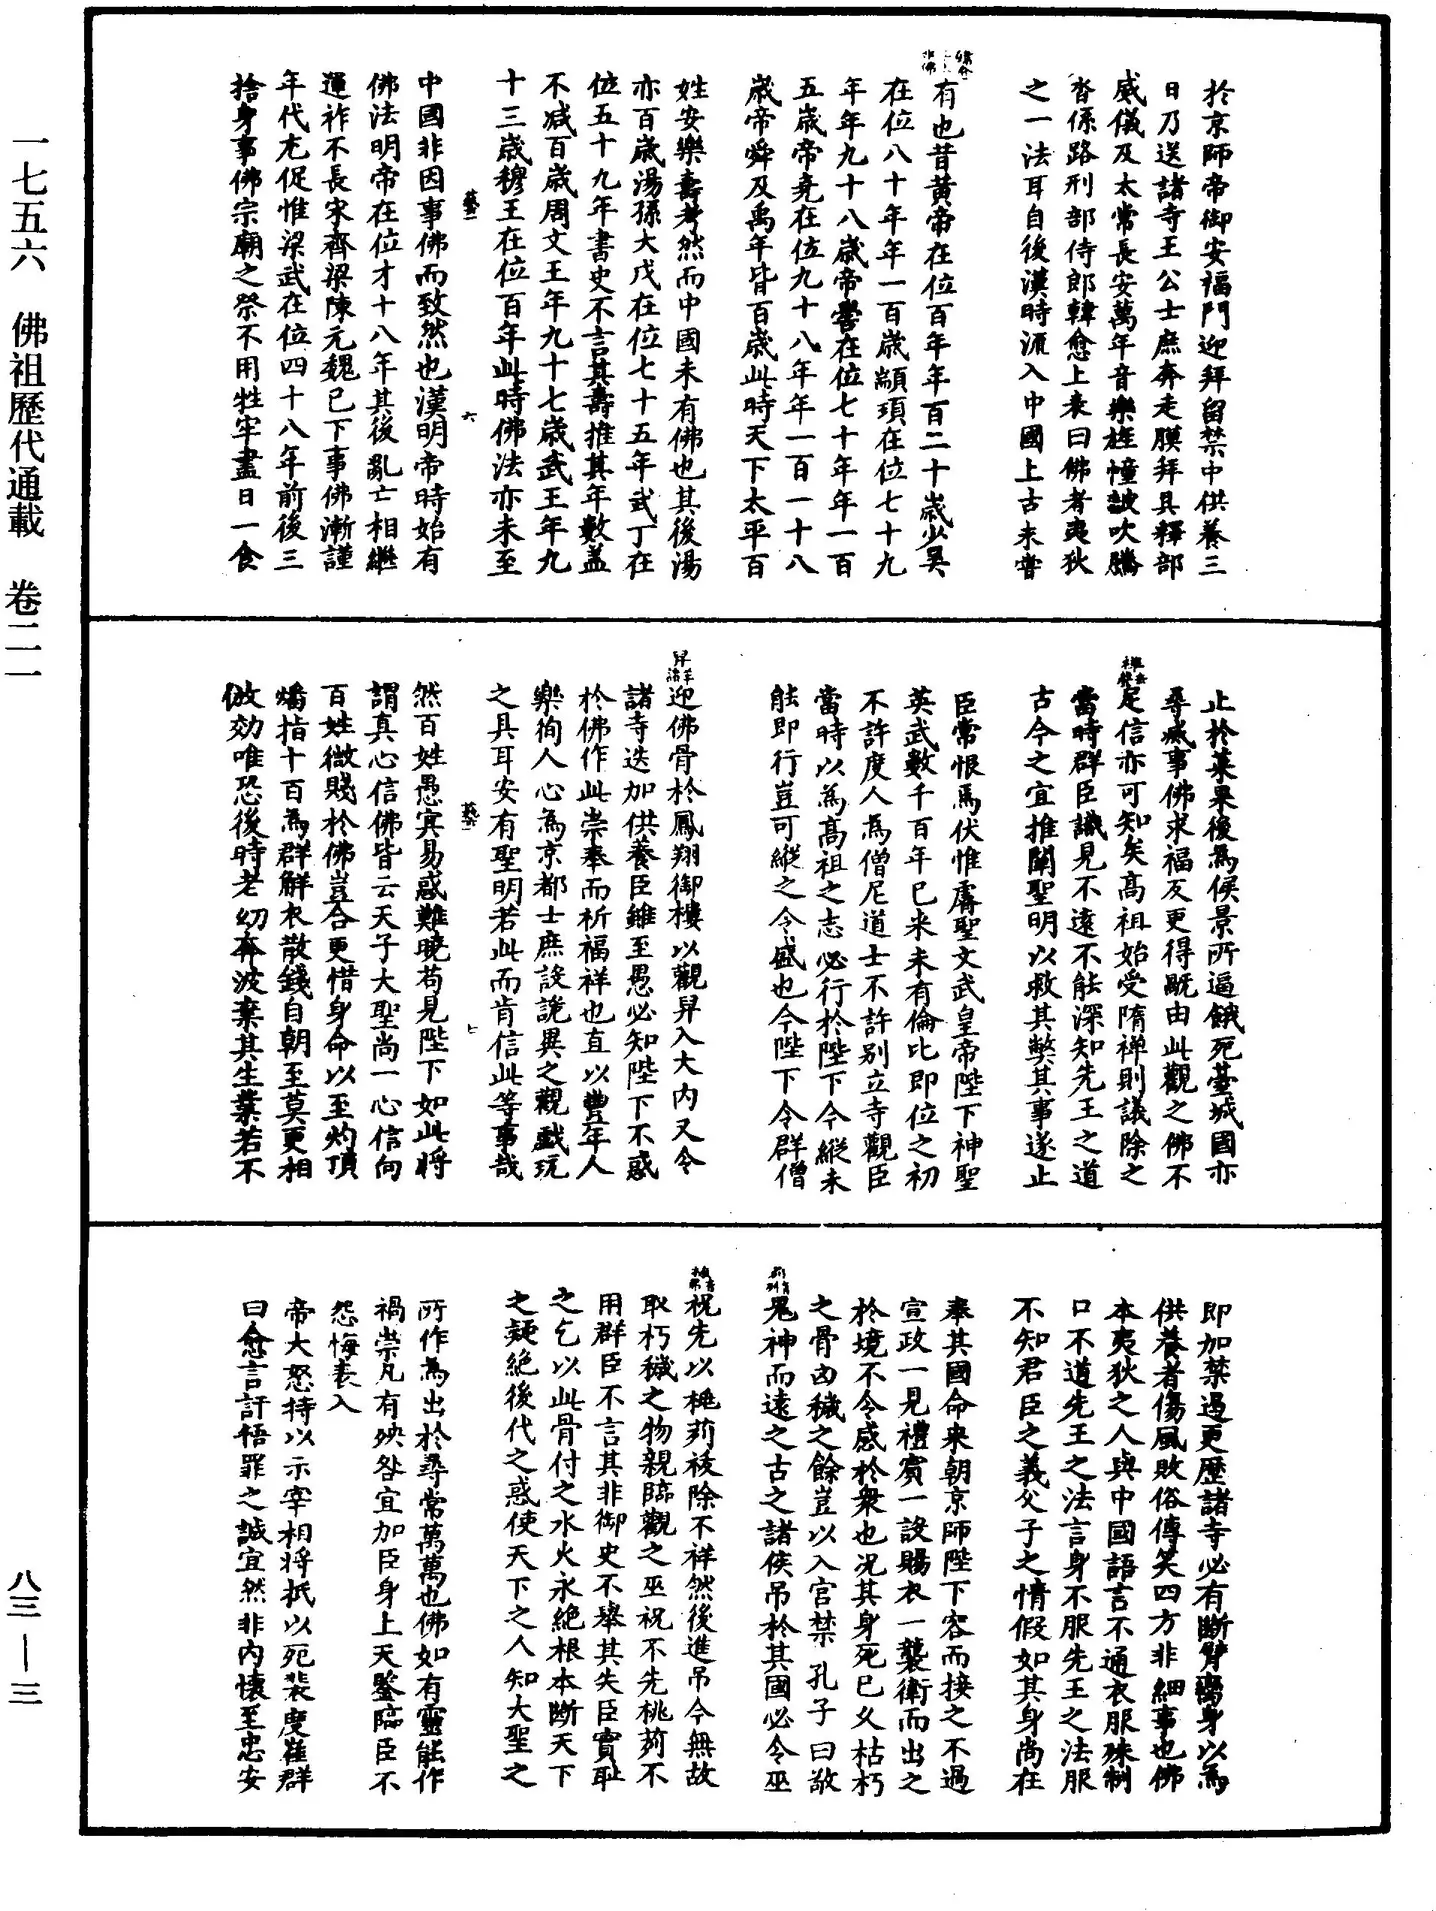 一七五六　佛祖歷代通載　卷二一
八三—三
於京師帝御安福門迎拜留禁中供養三
日乃送諸寺王公士庶奔走膜拜具釋部
威儀及太常長安萬年音樂旌幢皷吹騰
沓係路刑部侍郎韓愈上表曰佛者夷狄
之一法耳自後漢時流入中國上古未嘗
有也昔黃帝在位百年年百二十歲少昊
在位八十年年一百歲顓頊在位七十九
年年九十八歲帝嚳在位七十年年一百
五歲帝堯在位九十八年年一百一十八
歲帝舜及禹年皆百歲此時天下太平百
姓安樂壽考然而中國未有佛也其後湯
亦百歲湯孫大戊在位七十五年武丁在
位五十九年書史不言其壽推其年數盖
不减百歲周文王年九十七歲武王年九
十三歲穆王在位百年此時佛法亦未至
六
中國非因事佛而致然也漢明帝時始有
佛法明帝在位才十八年其後亂亡相繼
運祚不長宋齊梁陳元魏已下事佛漸謹
年代尤促惟梁武在位四十八年前後三
捨身事佛宗廟之祭不用牲牢盡日一食
止於菜果後為侯景所逼餓死臺城國亦
尋滅事佛求福反更得既由此觀之佛不
足信亦可知矣高祖始受隋禅則議除之
當時群臣識見不遠不能深知先王之道
古今之宜推闡聖明以救其獘其事遂止
臣常恨焉伏惟膚聖文武皇帝陛下神聖
英武數千百年已来未有倫比即位之初
不許度人為僧尼道士不許別立寺觀臣
當時以為高祖之志必行於陛下今縱未
能即行豈可縱之令盛也今陛下令群僧
迎佛骨於鳳翔御樓以觀舁入大內又令
諸寺迭加供養臣雖至愚必知陛下不惑
於佛作此崇奉而祈福祥也直以豐年人
樂徇人心為京都士庶設詭異之觀戲玩
之具耳安有聖明若此而肯信此等事哉
七
然百姓愚㝠易惑難曉苟見陛下如此将
謂真心信佛皆云天子大聖尚一心信向
百姓微賤於佛豈合更惜身命以至灼頂
燔指十百為群解衣散錢自朝至莫更相
倣効唯恐後時老幼奔波棄其生業若不
即加禁遏更歷諸寺必有斷臂臠身以為
供養者傷風敗俗傳笑四方非細事也佛
本夷狄之人與中國語言不通衣服殊制
口不道先王之法言身不服先王之法服
不知君臣之義父子之情假如其身尚在
奉其國命来朝京師陛下容而接之不過
宣政一見禮賓一設賜衣一襲衛而出之
於境不令惑於衆也况其身死已久枯朽
之骨凶穢之餘豈以入宫禁孔子曰敬
鬼神而遠之古之諸侯吊於其國必令巫
祝先以桃茢祓除不祥然後進吊今無故
取朽穢之物親臨觀之巫祝不先桃茢不
用群臣不言其非御史不舉其失臣實耻
之乞以此骨付之水火永絕根本断天下
之疑絕後代之惑使天下之人知大聖之
所作為出於尋常萬萬也佛如有靈能作
禍崇凡有殃咎宜加臣身上天鑒臨臣不
怨悔表入
帝大怒持以示宰相将抵以死裴度崔群
曰愈言訐牾罪之誠宜然非内懐至忠安